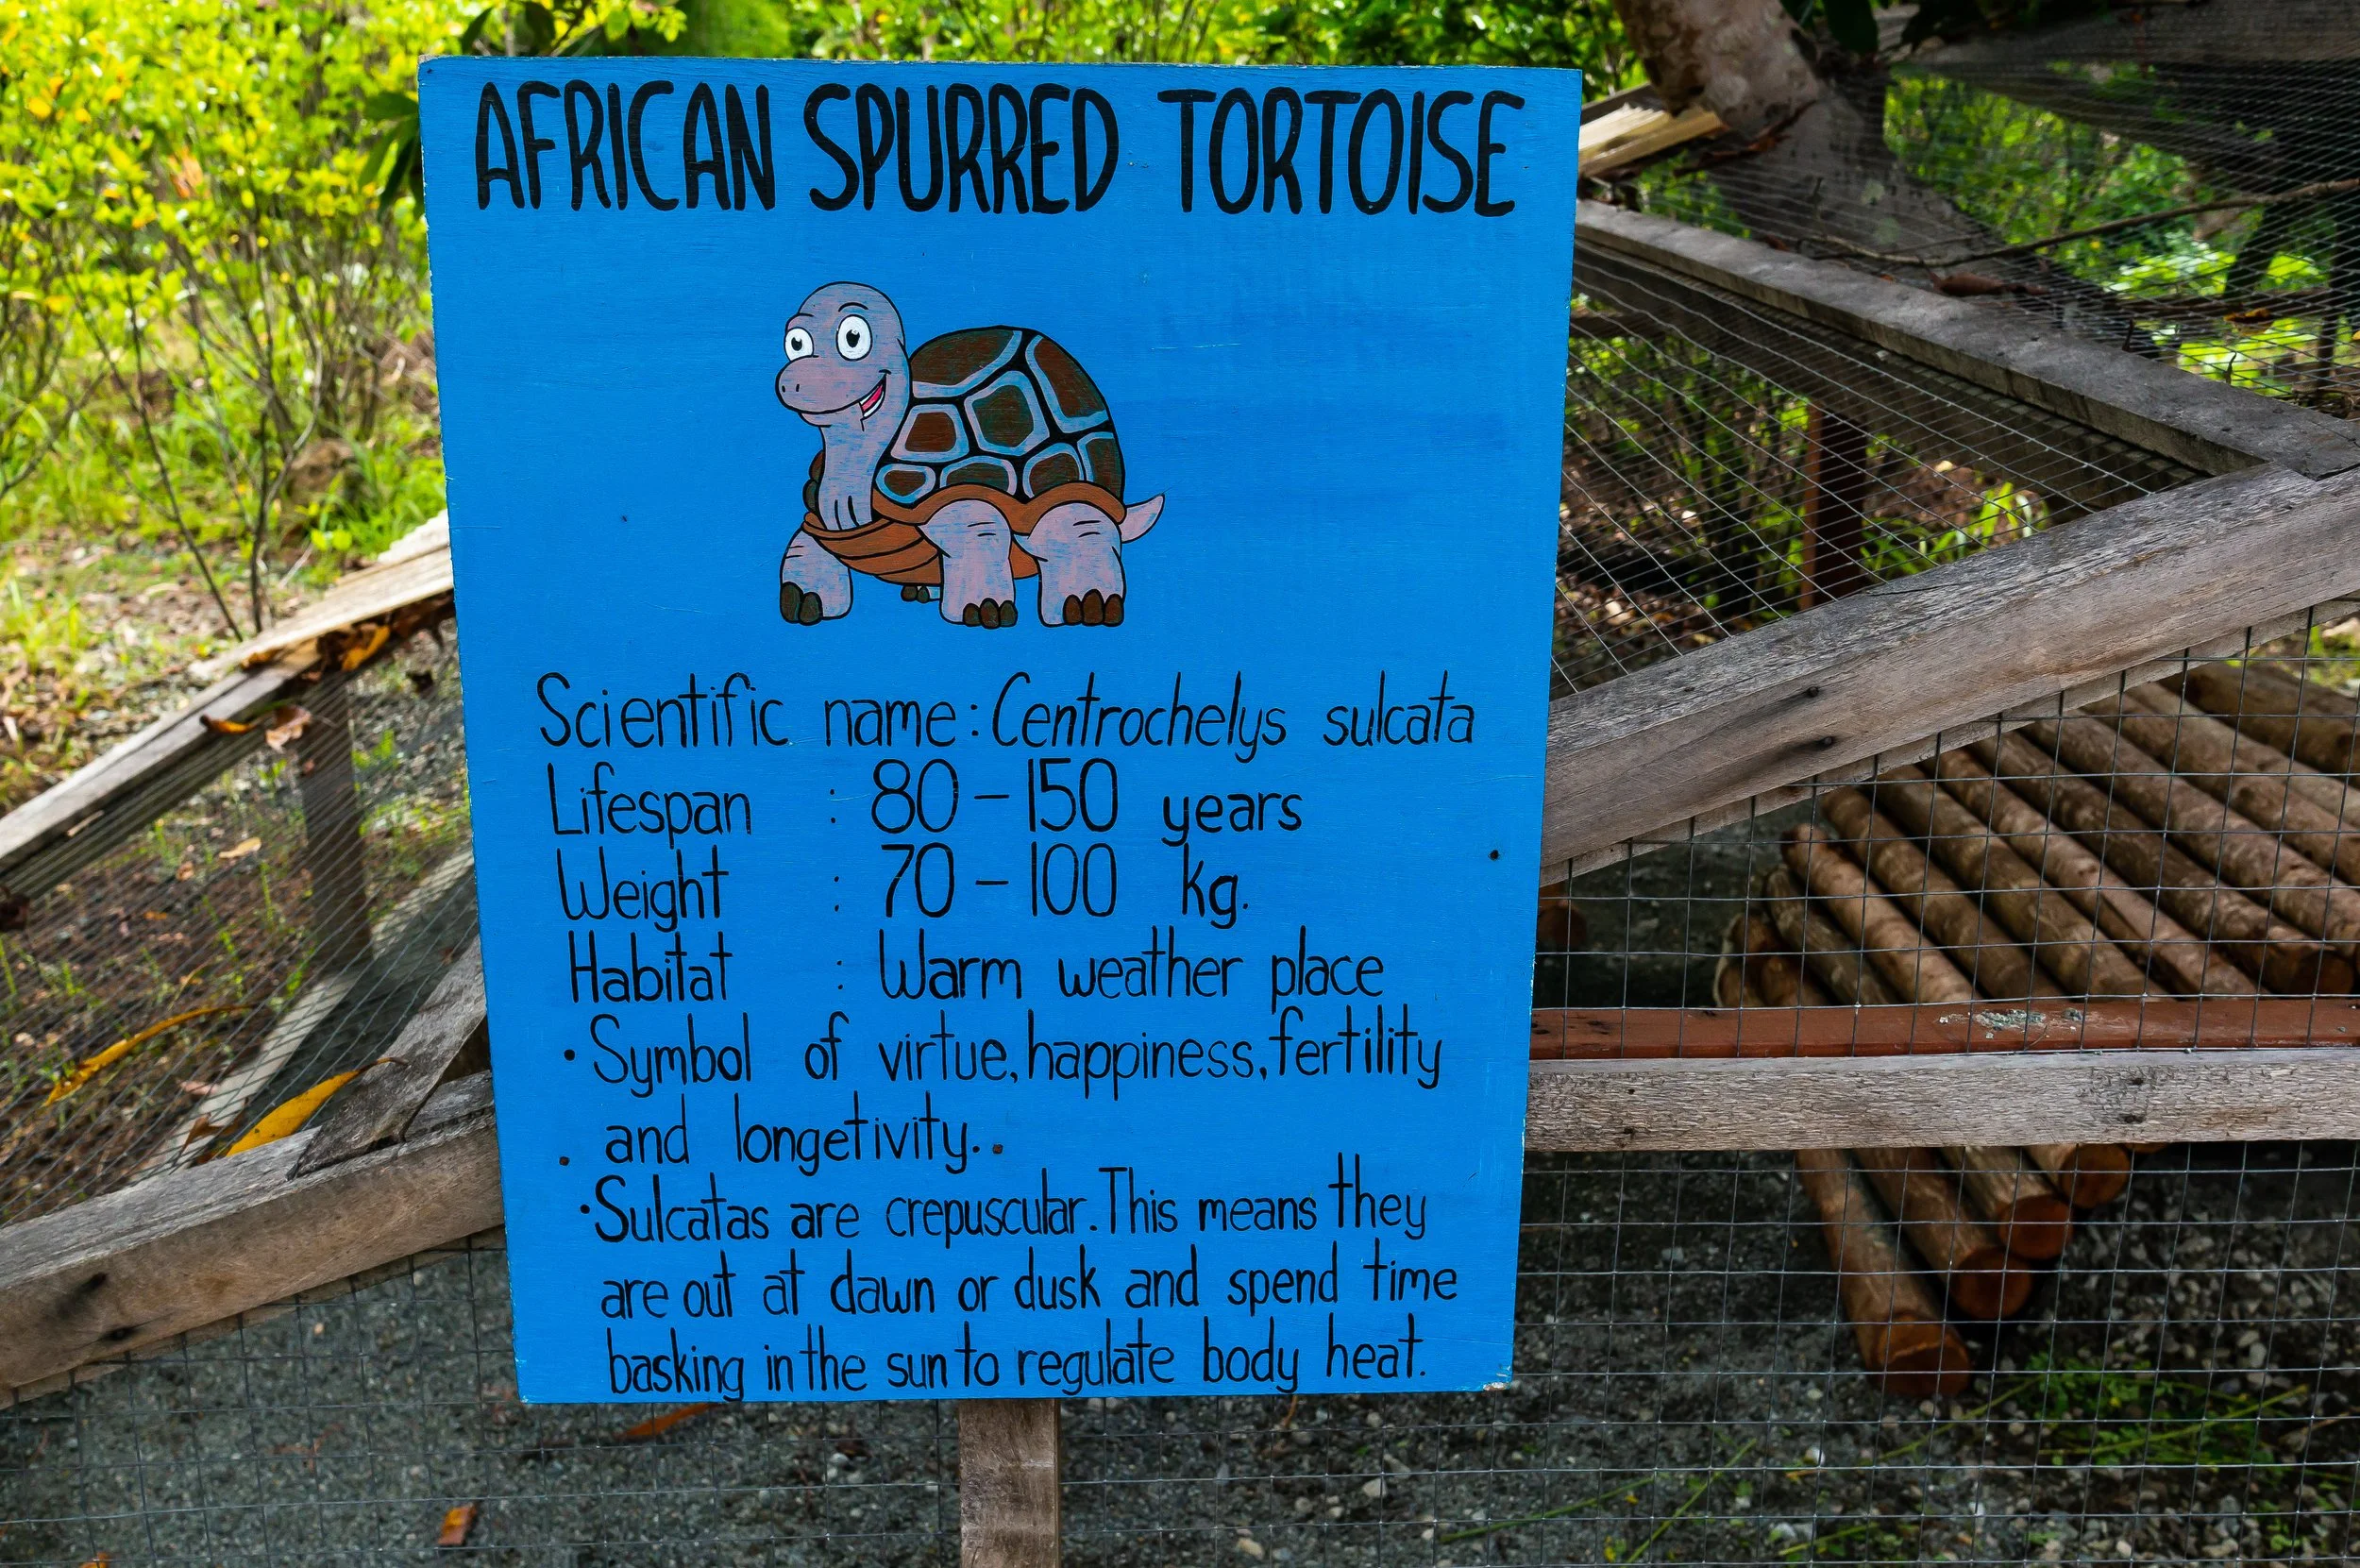 AFRICAN SPURRED TORTOISE
Scientific name: Centrochelys sulcata
Lifespan : 80 - 150 years
Weight : 70 - 100 kg.
Habitat : Warm weather place
• Symbol of virtue, happiness, fertility
and longetivity.
• Sulcatas are crepuscular. This means they
are out at dawn or dusk and spend time
basking in the sun to regulate body heat.